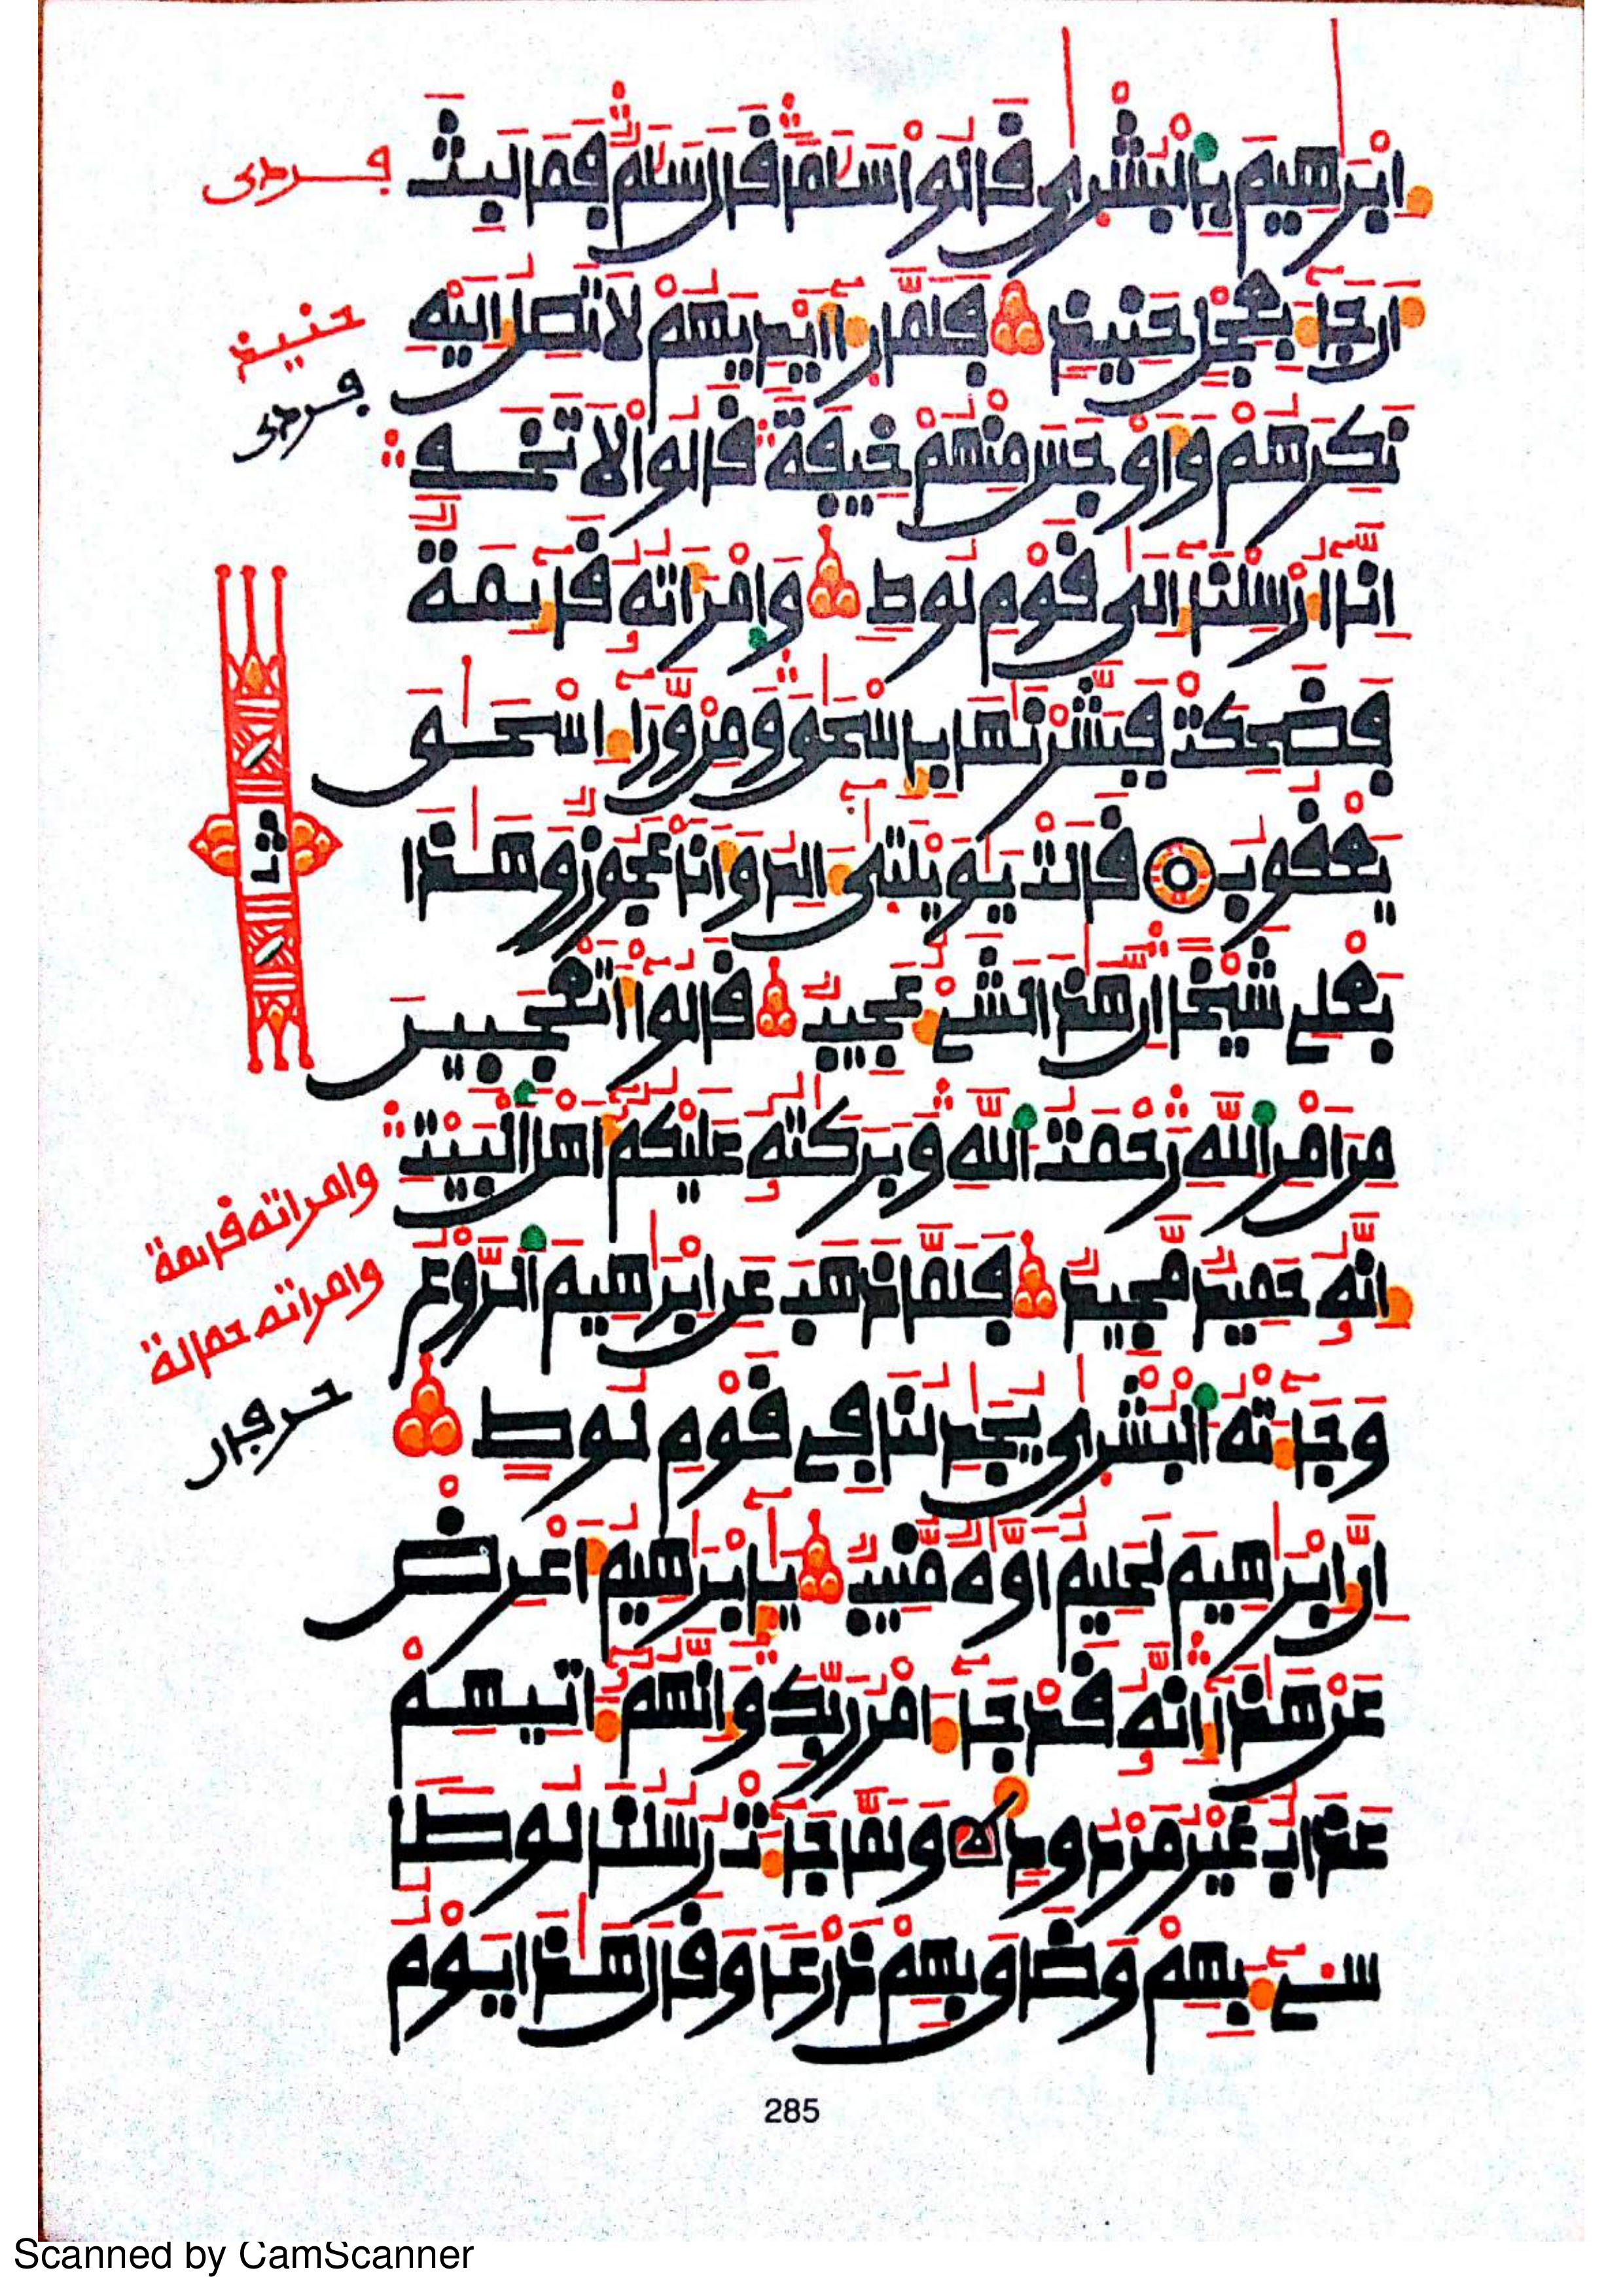 اِبْرَٰهِيمَ بِالْبُشْرٰى قَالُواْ سَلَٰماً قَالَ سَلَٰمٌ فَمَا لَبِثَ
أَن جَآءَ بِعِجْلٍ حَنِيذٍ فَلَمَّا رَءَآ أَيْدِيَهُمْ لَا تَصِلُ إِلَيْهِ
نَكِرَهُمْ وَأَوْجَسَ مِنْهُمْ خِيفَةً قَالُواْ لَا تَخَفِ
اِنَّآ أُرْسِلْنَآ إِلَىٰ قَوْمِ لُوطٍ وَامْرَأَتُهُ قَآئِمَةٌ
فَضَحِكَتْ فَبَشَّرْنَٰهَا بِإِسْحَٰقَ وَمِنْ وَّرَآءِ اسْحَٰقَ
يَعْقُوبُ قَالَتْ يَٰوَيْلَتَىٰٓ ءَالِدُ وَأَنَا عَجُوزٌ وَهَٰذَا
بَعْلِي شَيْخاً إِنَّ هَٰذَا لَشَيْءٌ عَجِيبٌ قَالُوٓاْ أَتَعْجَبِينَ
مِنَ امْرِ اللَّهِ رَحْمَتُ اللَّهِ وَبَرَكَٰتُهُ عَلَيْكُمُ أَهْلَ الْبَيْتِ
إِنَّهُ حَمِيدٌ مَّجِيدٌ فَلَمَّا ذَهَبَ عَنِ ابْرَٰهِيمَ الرَّوْعُ
وَجَآءَتْهُ الْبُشْرٰى يُجَٰدِلُنَا فِي قَوْمِ لُوطٍ
إِنَّ إِبْرَٰهِيمَ لَحَلِيمٌ أَوَّٰهٌ مُّنِيبٌ يَٰٓإِبْرَٰهِيمُ أَعْرِضْ
عَنْ هَٰذَآ إِنَّهُ قَدْ جَآءَ امْرُ رَبِّكَ وَإِنَّهُمُ ءَاتِيهِمْ
عَذَابٌ غَيْرُ مَرْدُودٍ وَلَمَّا جَآءَتْ رُسُلُنَا لُوطاً
سِيٓءَ بِهِمْ وَضَاقَ بِهِمْ ذَرْعاً وَقَالَ هَٰذَا يَوْمٌ
حنيذ
ثمن
وامراته قايمة
وامراته حمالة
285
Scanned by CamScanner